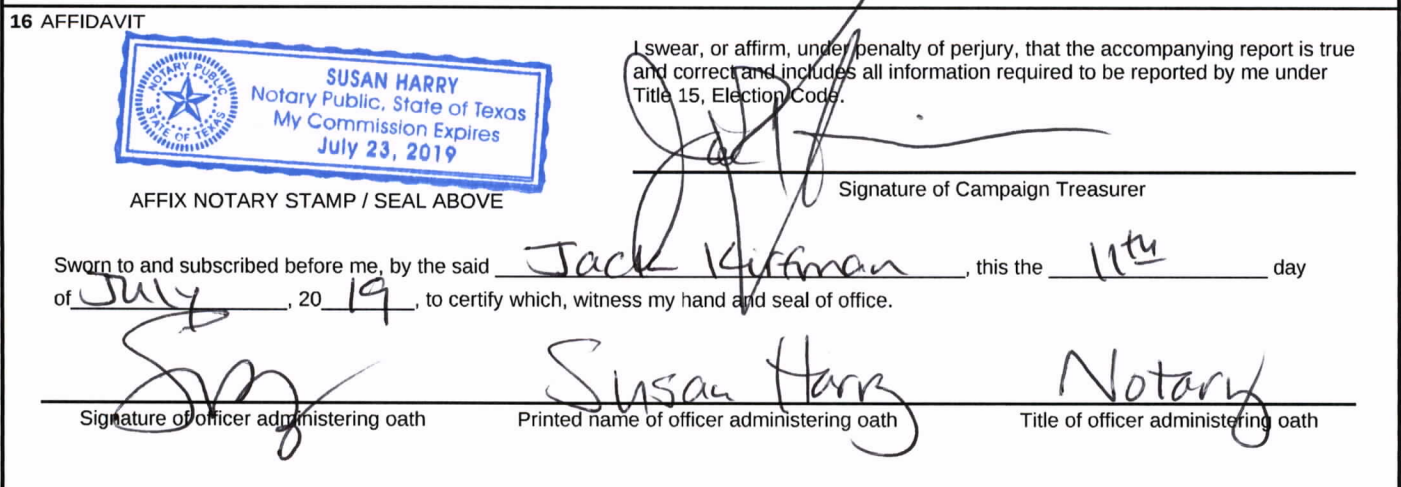 16 AFFIDAVIT
NOTARY PUBLIC
STATE OF TEXAS
SUSAN HARRY
Notary Public, State of Texas
My Commission Expires
July 23, 2019
AFFIX NOTARY STAMP / SEAL ABOVE
I swear, or affirm, under penalty of perjury, that the accompanying report is true
and correct and includes all information required to be reported by me under
Title 15, Election Code.
Signature of Campaign Treasurer
Sworn to and subscribed before me, by the said Jack Kiffman, this the 11th day
of July, 2019, to certify which, witness my hand and seal of office.
Susan Harry Notary
Signature of officer administering oath Printed name of officer administering oath Title of officer administering oath